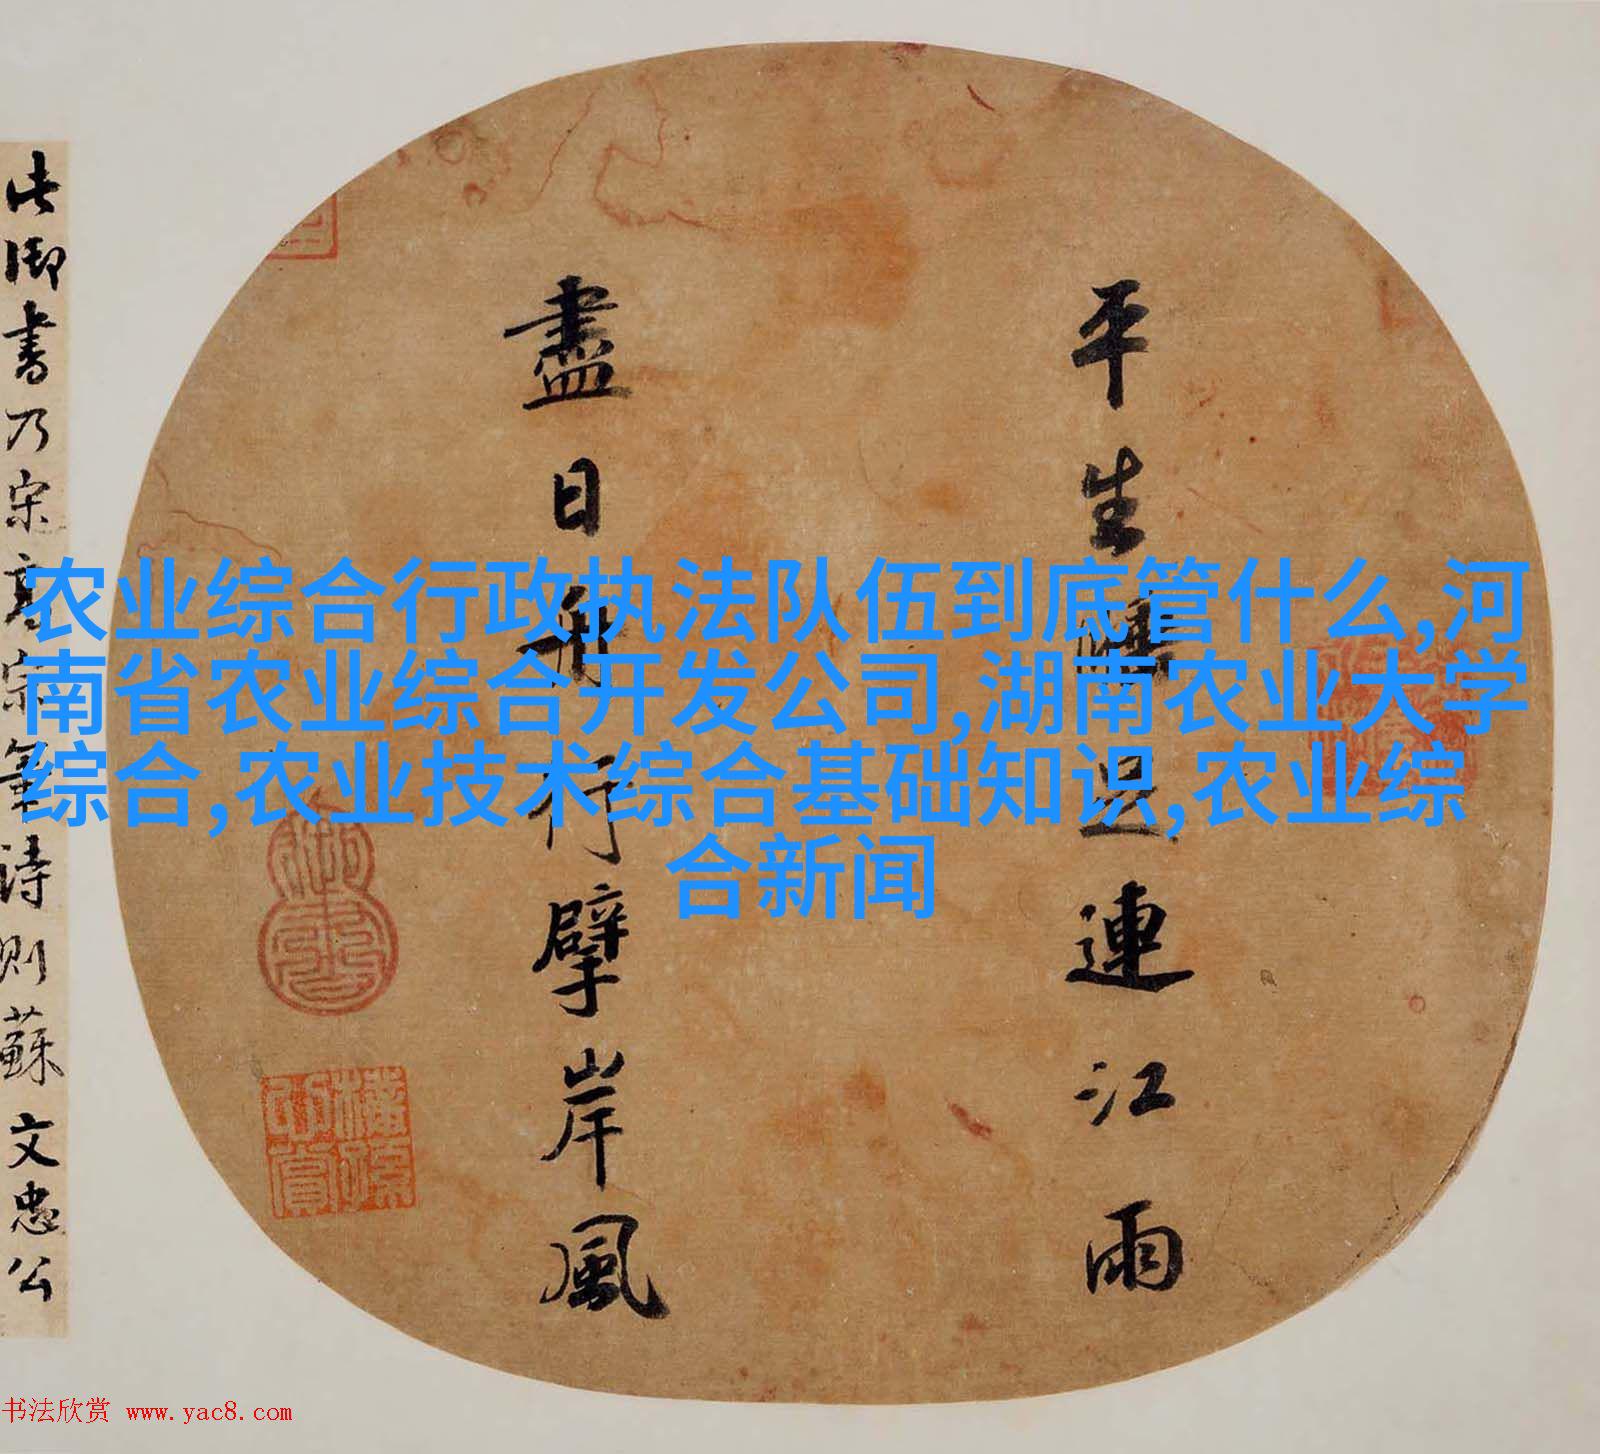 平生睡足連江雨
盡日舟行擘岸風
此御書乃宋高宗筆詩則蘇文忠公
农业综合行政执法队伍到底管什么,河
南省农业综合开发公司,湖南农业大学
综合,农业技术综合基础知识,农业综
合新闻
书法欣赏 www.yac8.com